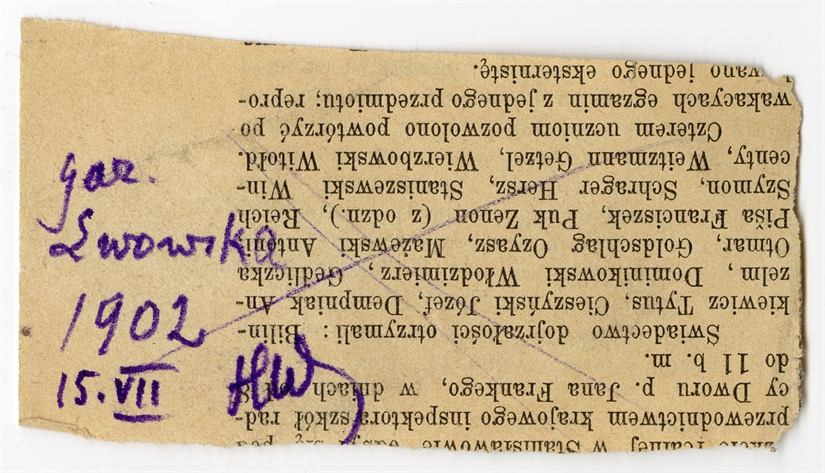 gaz.
Lwowska
1902
15. VII
HW
w Stanisławowie
przewodnictwem krajowego inspektora szkół rad-
cy Dworu p. Jana Frankego, w dniach
do 11 b. m.
Świadectwo dojrzałości otrzymali: Bilin-
kiewicz Tytus, Cieszyński Józef, Dempniak An-
zelm, Dominikowski Włodzimierz, Gedliczka
Otmar, Goldschlag Ozyasz, Mażewski Antoni,
Piša Franciszek, Puk Zenon (z odzn.), Reich
Szymon, Schrager Hersz, Staniszewski Win-
centy, Weitzmann Getzel, Wierzbowski Witołd.
Czterem uczniom pozwolono powtórzyć po
wakacyach egzamin z jednego przedmiotu; repro-
wano jednego eksternistę.